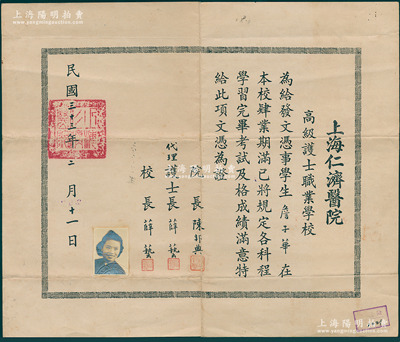 上海陽明拍賣
上海仁濟醫院
高級護士職業學校
為給發文憑事學生詹子華在
本校肄業期滿已將規定各科程
學習完畢考試及格成績滿意特
給此項文憑為證
院長陳邦典
代理護士長薛藝
校長薛藝
民國三十五年 二月十一日
上海陽明拍賣